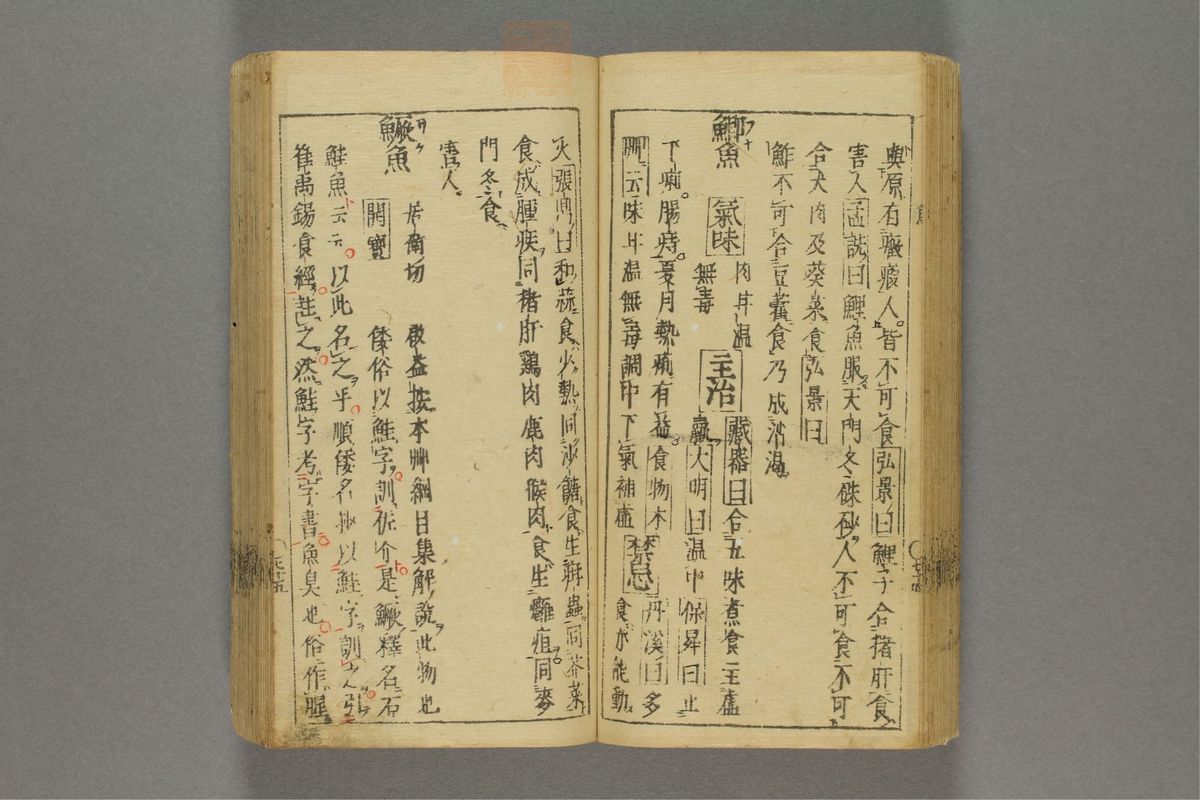 魚
與原有癥瘕人皆不可食弘景曰鯉子合猪肝食
害人孟詵曰鯉魚服天門冬硃砂人不可食不可
合犬肉及葵菜食弘景曰
鮓不可合豆藿食乃成消渴
鯽魚 氣味 肉甘温
無毒 主治 藏器曰合五味煮食主虛
羸大明曰温中保昇曰止
下痢腸痔夏月熱痢有益食物本
艸云味甘温無毒調中下氣補虛 禁忌 丹溪曰多
食亦能動
火張鼎曰和蒜食少熱同沙糖食生疳蟲同芥菜
食成腫疾同猪肝鶏肉鹿肉猴肉食生癰疽同麥
門冬食
害人
鱖魚 居衛切
開寶
啟益按本艸綱目集解說此物也
倭俗以鮭字訓佐介是鱖釋名石
鮭魚云云以此名之乎順倭名抄以鮭字訓之引
崔禹錫食經註之然鮭字考字書魚臭也俗作腥